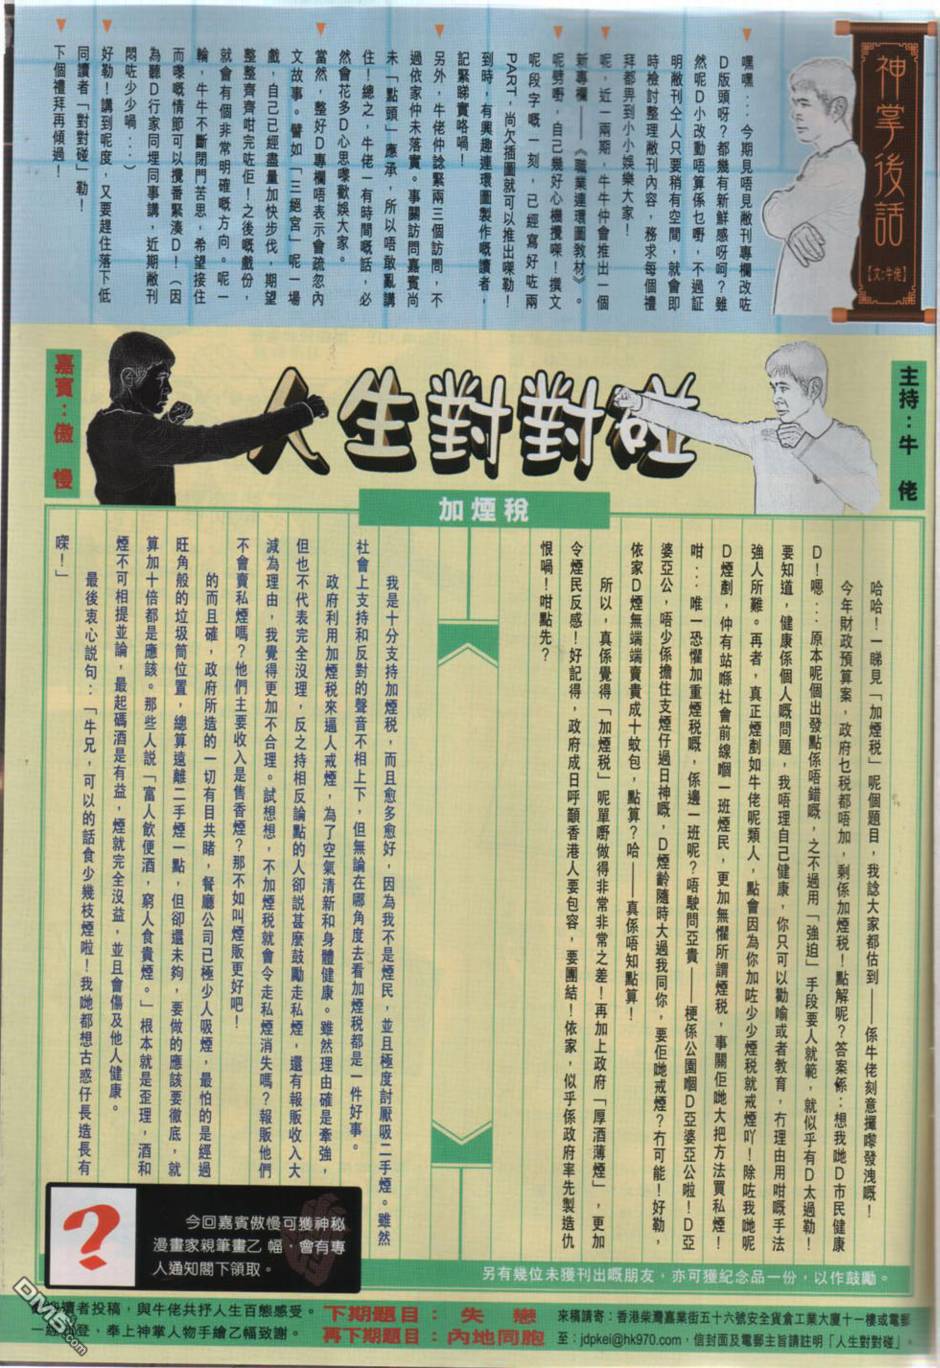 神掌後話
【文:牛佬】
嘿嘿…今期見唔見敝刊專欄改咗
D版頭呀?都幾有新鮮感呀呵?雖
然呢D小改動唔算係乜嘢,不過証
明敝刊仝人只要稍有空間,就會即
時檢討整理敝刊內容,務求每個禮
拜都畀到小小娛樂大家!
呢,近一兩期,牛牛仲會推出一個
新專欄——《職業連環圖教材》。
呢嚿嘢,自己幾好心機攪㗎!撰文
呢段字嘅一刻,已經寫好咗兩
PART,尚欠插圖就可以推出㗎勒!
到時,有興趣連環圖製作嘅讀者,
記緊睇實咯喎!
另外,牛佬仲諗緊兩三個訪問,不
過依家仲未落實。事關訪問嘉賓尚
未「點頭」應承,所以唔敢亂講
住!總之,牛佬一有時間嘅話,必
然會花多D心思嚟歡娛大家。
當然,整好D專欄唔表示會疏忽內
文故事。譬如「三絕宮」呢一場
戲,自己已經盡量加快步伐,期望
整整齊齊咁完咗佢!之後嘅戲份,
就會有個非常明確嘅方向。呢一
輪,牛牛不斷閉門苦思,希望接住
而嚟嘅情節可以攪番緊湊D!(因
為聽D行家同埋同事講,近期敝刊
悶咗少少喎…)
好勒!講到呢度,又要趕住落下低
同讀者「對對碰」勒!
下個禮拜再傾過!
主持:牛佬
人生對對碰
嘉賓:傲慢
加煙稅
哈哈!一睇見「加煙稅」呢個題目,我諗大家都估到——係牛佬刻意攞嚟發洩嘅!
今年財政預算案,政府乜稅都唔加,剩係加煙稅!點解呢?答案係:想我哋D市民健康
D!嗯…原本呢個出發點係唔錯嘅,之不過用「強迫」手段要人就範,就似乎有D太過勒!
要知道,健康係個人嘅問題,我唔理自己健康,你只可以勸喻或者教育,冇理由用咁嘅手法
強人所難。再者,真正煙剷如牛佬呢類人,點會因為你加咗少少煙稅就戒煙吖!除咗我哋呢
D煙剷,仲有站喺社會前線嗰一班煙民,更加無懼所謂煙稅,事關佢哋大把方法買私煙!
咁…唯一恐懼加重煙稅嘅,係邊一班呢?唔駛問亞貴——梗係公園嗰D亞婆亞公啦!D亞
婆亞公,唔少係擔住支煙仔過日神嘅,D煙齡隨時大過我同你,要佢哋戒煙?冇可能!好勒,
依家D煙無端端賣貴成十蚊包,點算?哈——真係唔知點算!
所以,真係覺得「加煙稅」呢單嘢做得非常非常之差!再加上政府「厚酒薄煙」,更加
令煙民反感!好記得,政府成日呼籲香港人要包容,要團結!依家,似乎係政府率先製造仇
恨喎!咁點先?
我是十分支持加煙稅,而且愈多愈好,因為我不是煙民,並且極度討厭吸二手煙。雖然
社會上支持和反對的聲音不相上下,但無論在哪角度去看加煙稅都是一件好事。
政府利用加煙稅來逼人戒煙,為了空氣清新和身體健康。雖然理由確是牽強,
但也不代表完全沒理,反之持相反論點的人卻説甚麼鼓勵走私煙,還有報販收入大
減為理由,我覺得更加不合理。試想想,不加煙稅就會令走私煙消失嗎?報販他們
不會賣私煙嗎?他們主要收入是售香煙?那不如叫煙販更好吧!
的而且確,政府所造的一切有目共睹,餐廳公司已極少人吸煙,最怕的是經過
旺角般的垃圾筒位置,總算遠離二手煙一點,但卻還未夠,要做的應該要徹底,就
算加十倍都是應該。那些人説「富人飲便酒,窮人食貴煙。」根本就是歪理,酒和
煙不可相提並論,最起碼酒是有益,煙就完全沒益,並且會傷及他人健康。
最後衷心説句:「牛兄,可以的話食少幾枝煙啦!我哋都想古惑仔長造長有
㗎!」
?
今回嘉賓傲慢可獲神秘
漫畫家親筆畫乙幅,會有專
人通知閣下領取。
另有幾位未獲刊出嘅朋友,亦可獲紀念品一份,以作鼓勵。
讀者投稿,與牛佬共抒人生百態感受。
登,奉上神掌人物手繪乙幅致謝。
下期題目:失戀
再下期題目:內地同胞
來稿請寄:香港柴灣嘉業街五十六號安全貨倉工業大廈十一樓或電郵
至:jdpkei@hk970.com,信封面及電郵主旨請註明「人生對對碰」。